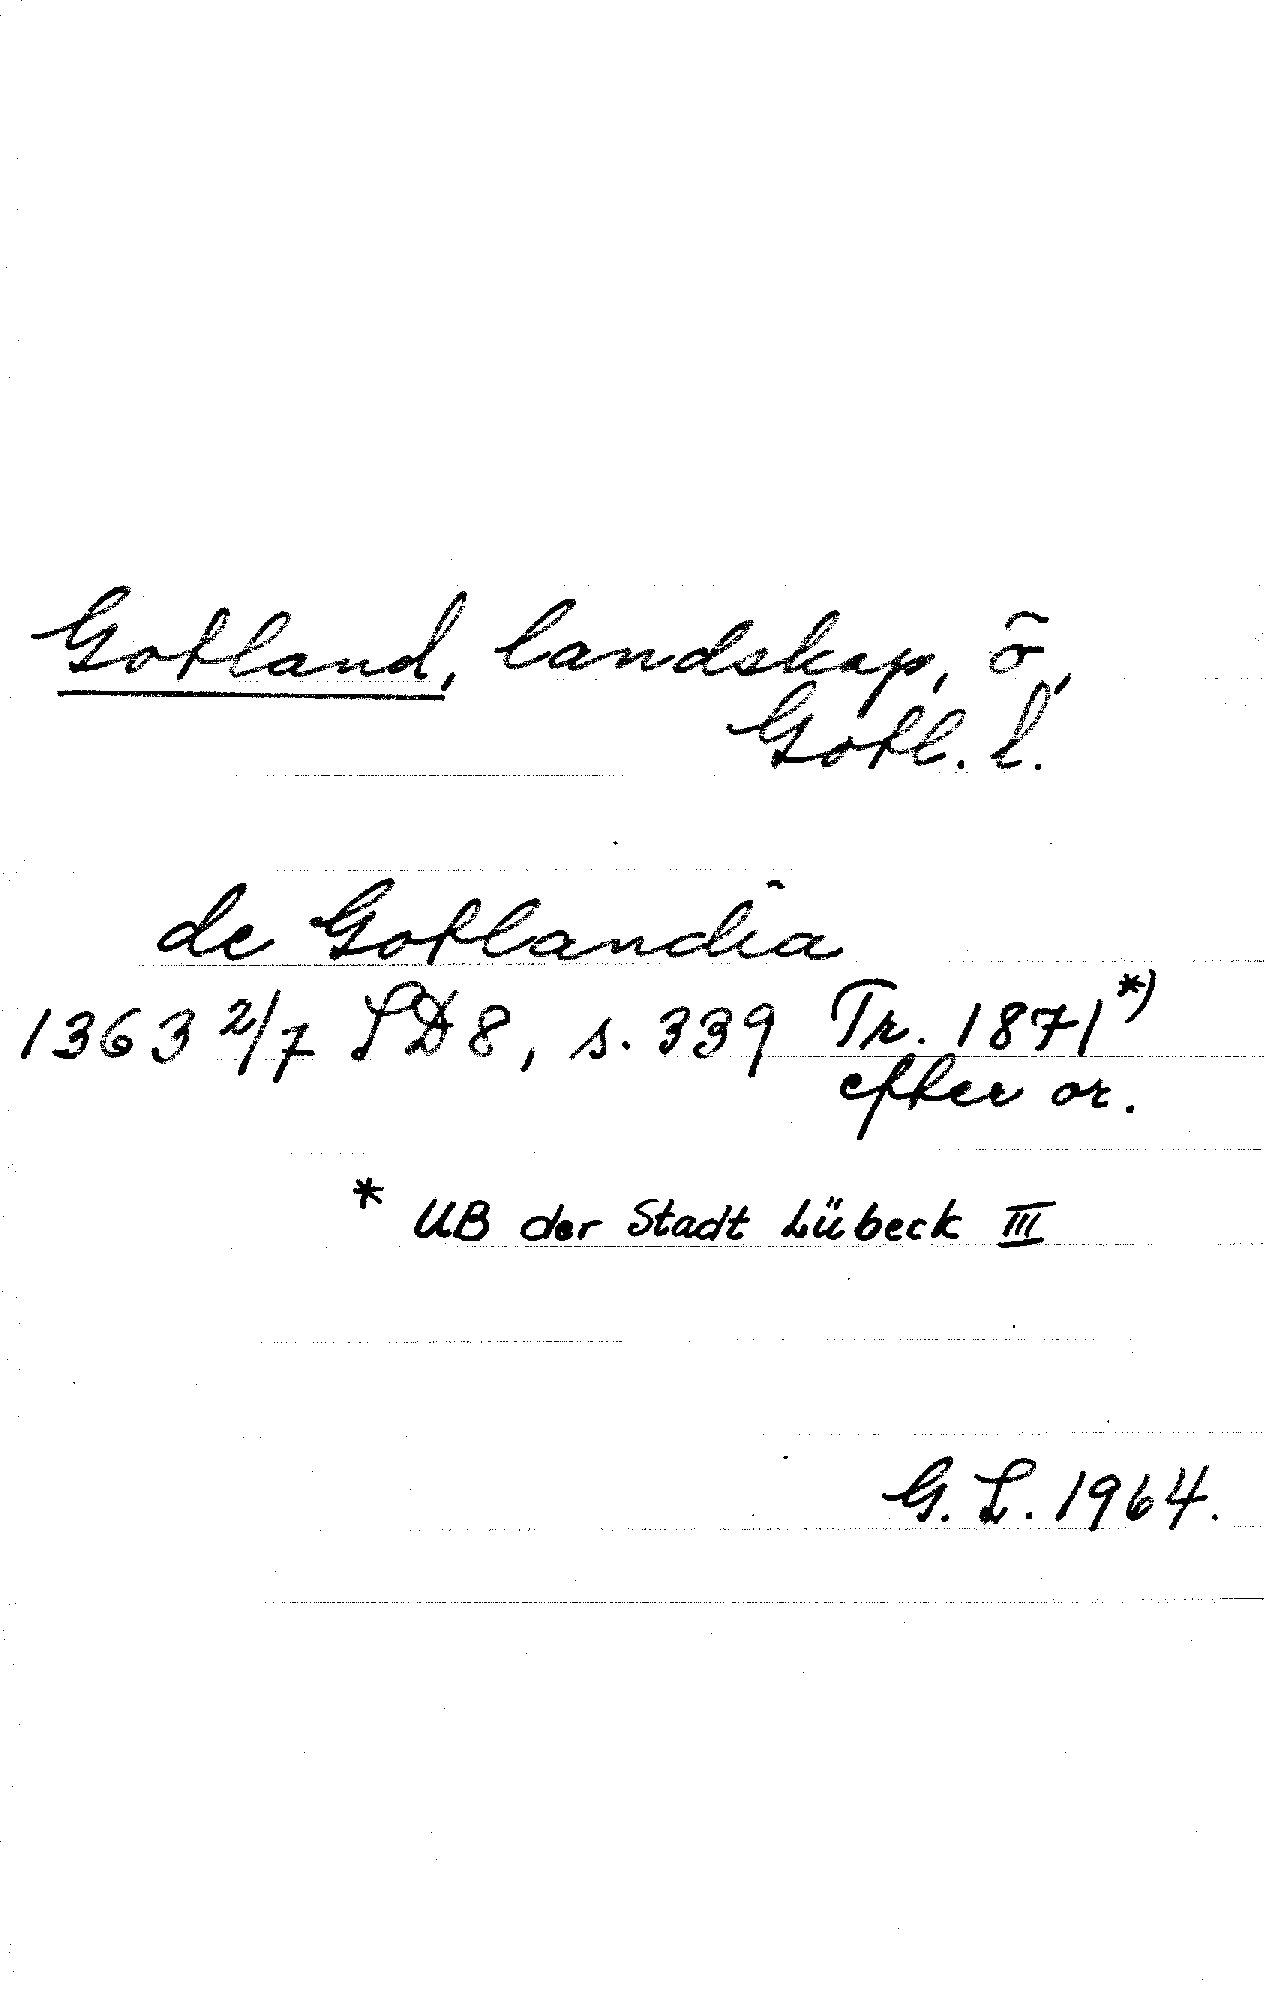 Gotland, landskap, ö,
Gotl. l.
de Gotlandia
1363 2/7 SD 8, s. 339 Tr. 1871*)
efter or.
* UB der Stadt Lübeck III
G. L. 1964.